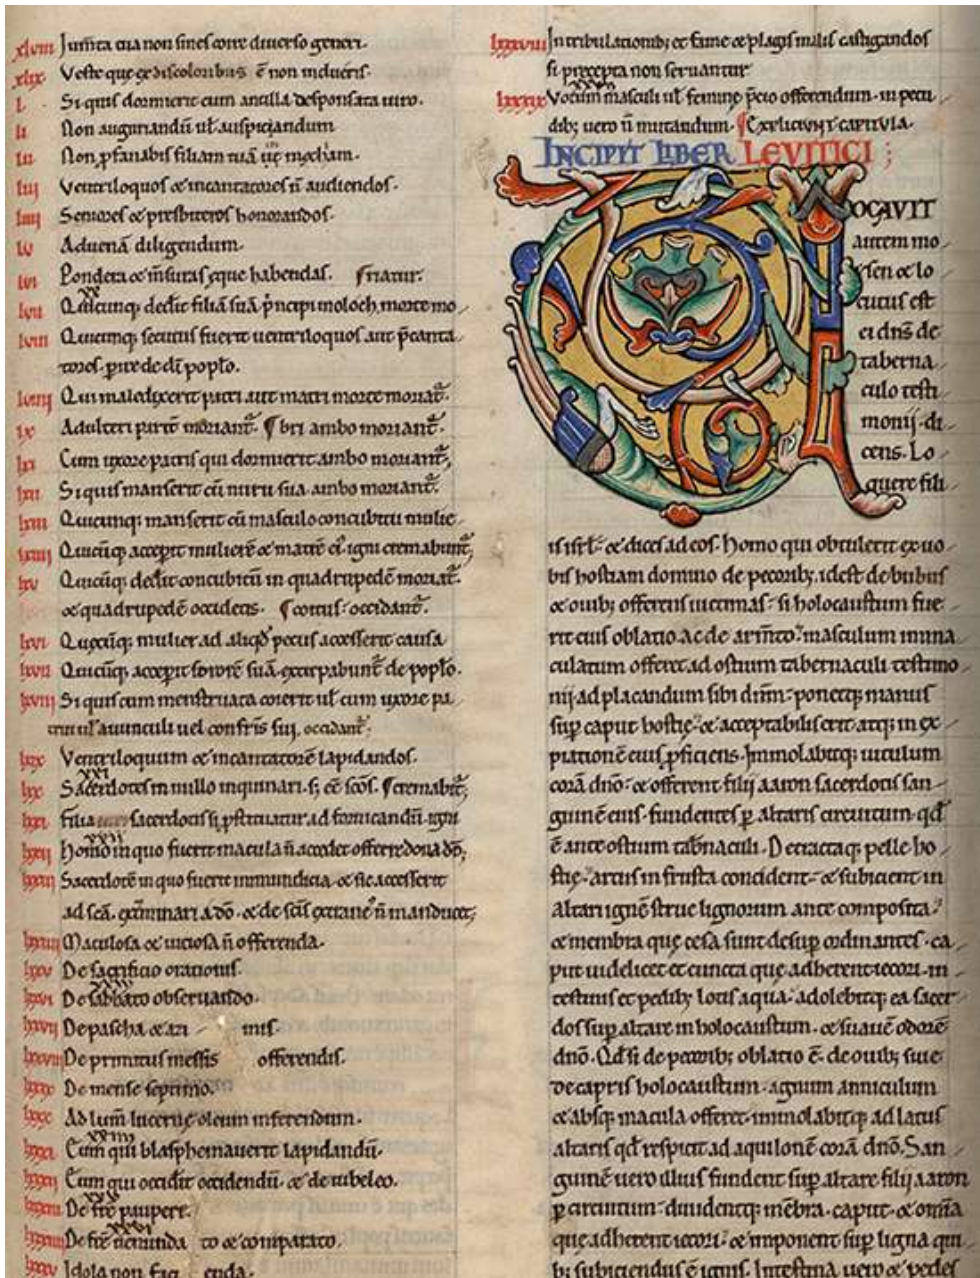 xlviii Jum̅ta tua non sines coire diuerso generi.
xlix Veste que ex discoloribus e̅ non indueris.
l. Si quis dormierit cum ancilla desponsata uiro.
li Non auguriandu̅ ul̅ auspiciandum
lii Non ꝓfanabis filiam tua̅
liii Ventriloquos & incantatores n̅ audiendos.
liiii Seniores & presbiteros honorandos.
lv Aduena̅ diligendum.
lvi Pondera & m̅suras eque habendas. ⸿riatur.
lvii Quicunq; dederit filia̅ sua̅ p̅ncipi moloch, morte mo
lviii Quicunq; secutus fuerit uentriloquos aut p̅canta
tores. perire de di̅ poplo.
lviiii Qui maledixerit patri aut matri morte moriat̅.
lx Adulteri pariter moriant̅. ⸿bri ambo moriant̅.
lxi Cum uxore patris qui dormierit ambo moriant̅;
lxii Si quis manserit cu̅ nuru sua. ambo moriant̅.
lxiii Quicunq; manserit cu̅ masculo concubitu mulie
lxiiii Quicu̅q; acceperit muliere̅ & matre̅ ei᷒ igni cremabunt̅;
lxv Quicu̅q; dederit concubitu̅ in quadrupede̅ moriat̅.
& quadrupede̅ occidetis. ⸿coitus: occidant̅.
lxvi Quecu̅q; mulier ad aliqd̅ pecus accesserit causa
lxvii Quicu̅q; acceperit sorore̅ sua̅. extirpabunt̅ de poplo.
lxviii Si quis cum menstruata coierit ul̅ cum uxore pa
trui ul̅ auunculi uel con fr̅is sui, occidant̅;
lxix Ventriloquum & incantatore̅ lapidandos.
lxx Sacerdotes in nullo inquinari. s; ee̅ sc̅os. ⸿cremabit̅;
lxxi filia sacerdotis si ꝓstituatur ad fornicandu̅. igni
lxxii Homo in quo fuerit macula n̅ accedet offerre dona do̅;
lxxiii Sacerdote̅ in quo fuerit inmundicia. & sic accesserit
ad sc̅a. ext̅minari a do̅. & de sc̅is extrane᷒ n̅ manducet;
lxxiiii Maculosa & uiciosa n̅ offerenda.
lxxv De sacrificio orationis.
lxxvi De sabbato obseruando.
lxxvii De pascha & azi mis.
lxxviii De primitiis messis offerendis.
lxxix De mense septimo.
lxxx Ad lum̅ lucerne oleum inferendum.
lxxxi Eum qui blasphemauerit lapidandu̅.
lxxxii Eum qui occidit occidendu̅. & de iubeleo.
lxxxiii De fr̅e paupere.
lxxxiiii De fr̅e uenunda to & comparato.
lxxxv Idola non faci enda.
lxxxviii In tribulationib; & fame & plagis malis castigandos
si precepta non seruantur
lxxxix Votum masculi ul̅ femine p̅cio offerendum. in pecu
dib; uero n̅ mutandum. ⸿Expliciunt capitula.
INCIPIT LIBER LEVITICI ;
VOCAVIT
autem mo
ysen & lo
cutus est
ei dn̅s de
taberna
culo testi
monij. di
cens. Lo
quere fili
is isrl̅. & dices ad eos. Homo qui obtulerit ex uo
bis hostiam domino de pecorib; idest de bubus
& ouib; offerens uictimas: si holocaustum fue
rit eius oblatio ac de arm̅to: masculum inma
culatum offeret ad ostium tabernaculi testimo
nij ad placandum sibi dn̅m: ponetq; manus
sup̅ caput hostie: & acceptabilis erit atq; in ex
piatione̅ eius ꝓficiens. Immolabitq; uitulum
cora̅ dn̅o: & offerent filij aaron sacerdotis san
guine̅ eius. fundentes ꝑ altaris circuitum. qd̅
e̅ ante ostium tab̅naculi. Detractaq; pelle ho
stie. artus in frusta concident. & subicient in
altari igne̅ strue lignorum ante composita:
& membra que cesa sunt desup̅ ordinantes. ca
put uidelicet & cuncta que adherent iecori. in
testinis et pedib; lotis aqua. adolebitq; ea sacer
dos sup̅ altare in holocaustum. & suaue̅ odore̅
dn̅o. Qd̅ si de pecorib; oblatio e̅. de ouib; siue
de capris holocaustum. agnum anniculum
& absq; macula offeret. immolabitq; ad latus
altaris qd̅ respicit ad aquilone̅ cora̅ dn̅o. San
guine̅ uero illius fundent sup̅ altare filij aaron
ꝑ circuitum: diuidentq; me̅bra. caput. & om̅ia
que adherent iecori: & imponent sup̅ ligna qui
b; subiciendus e̅ ignis. Intestina uero & pedes